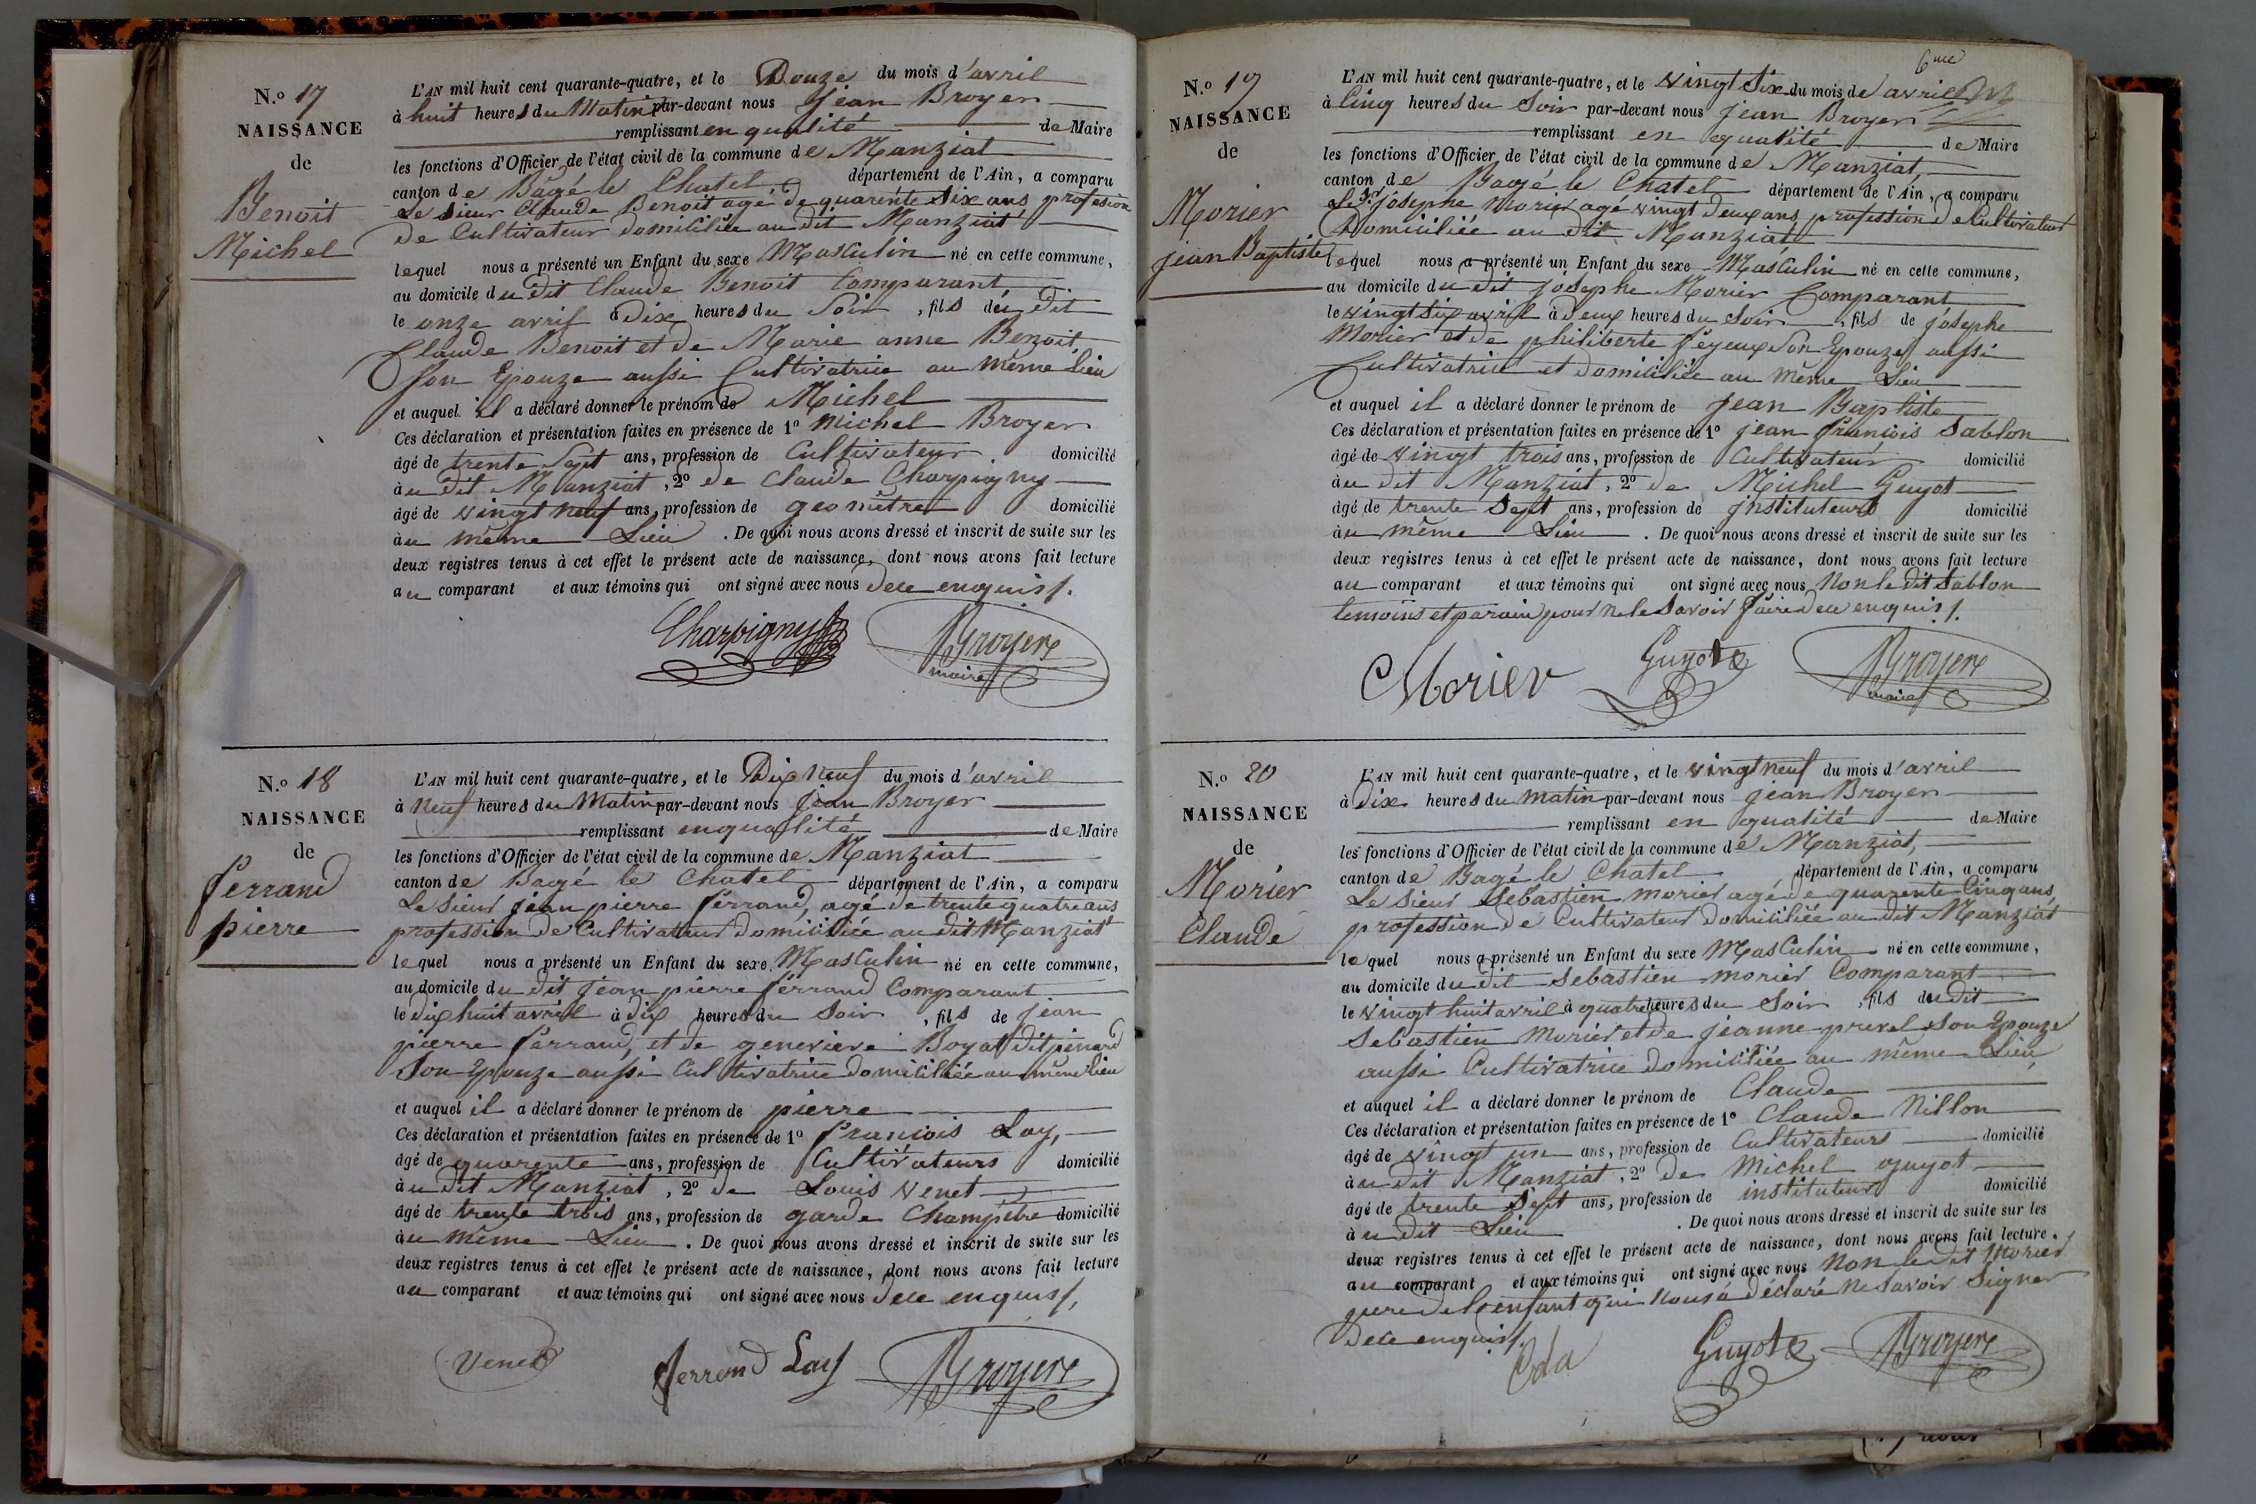 N.º 17
NAISSANCE
de
Benoit
Michel
L'AN mil huit cent quarante-quatre, et le Douze du mois d'avril
à huit heures du Matin par-devant nous Jean Broyer
remplissant en qualité de Maire
les fonctions d'Officier de l'état civil de la commune de Manziat
canton de Bâgé le Chatel département de l'Ain, a comparu
Le sieur Claude Benoit agé de quarente six ans profesion
de Cultivateur domiciliée au dit Manziat
lequel nous a présenté un Enfant du sexe Masculin né en cette commune,
au domicile du dit Claude Benoit Comparant
le onze avril à Dix heures du Soir, fils du dit
Claude Benoit et de Marie anne Benoit
Son Epouze aussi Cultivatrice au même lieu
et auquel il a déclaré donner le prénom de Michel
Ces déclaration et présentation faites en présence de 1º Michel Broyer
âgé de trente Sept ans, profession de Cultivateur domicilié
à au dit Manziat, 2º de Claude Charpigny
âgé de vingt neuf ans, profession de geomêtre domicilié
à au même Lieu. De quoi nous avons dressé et inscrit de suite sur les
deux registres tenus à cet effet le présent acte de naissance, dont nous avons fait lecture
au comparant et aux témoins qui ont signé avec nous de ce enquis /.
Charpigny Broyer
maire
N.º 18
NAISSANCE
de
ferrand
pierre
L'AN mil huit cent quarante-quatre, et le Dix neuf du mois d'avril
à Neuf heures du Matin par-devant nous Jean Broyer
remplissant en qualité de Maire
les fonctions d'Officier de l'état civil de la commune de Manziat
canton de Bagé le Chatel département de l'Ain, a comparu
Le sieur Jean pierre ferrand, agé de trente quatre ans
profession de Cultivateur domiciliée au dit Manziat
lequel nous a présenté un Enfant du sexe Masculin né en cette commune,
au domicile du dit Jean pierre ferrand Comparant
le dix huit avril à dix heures du Soir, fils de jean
pierre ferrand, et de genevieve Boyat dit pinard
Son Epouze aussi Cultivatrice domiciliée au même lieu
et auquel il a déclaré donner le prénom de pierre
Ces déclaration et présentation faites en présence de 1º francois Lay,
âgé de quarente ans, profession de Cultivateurs domicilié
à au dit Manziat, 2º de Louis Venet
âgé de trente trois ans, profession de garde Champêtre domicilié
à au même Lieu. De quoi nous avons dressé et inscrit de suite sur les
deux registres tenus à cet effet le présent acte de naissance, dont nous avons fait lecture
au comparant et aux témoins qui ont signé avec nous de ce enquis /.
Venet ferrand Lay Broyer
N.º 19
NAISSANCE
de
Morier
jean Baptiste
L'AN mil huit cent quarante-quatre, et le vingt Six du mois de avril
à Cinq heures du Soir par-devant nous Jean Broyer
remplissant en qualité de Maire
les fonctions d'Officier de l'état civil de la commune de Manziat,
canton de Bagé le Chatel département de l'Ain, a comparu
Le Sr. Josephe Morier agé vingt deux ans profession de Cultivateur
Domiciliée au dit Manziat
lequel nous a présenté un Enfant du sexe Masculin né en cette commune,
au domicile du dit josephe Morier Comparant
le vingt Six avril à deux heures du Soir, fils de josephe
Morier et de philiberte feyeux Son Epouze aussi
Cultivatrice et domiciliée au même Lieu
et auquel il a déclaré donner le prénom de Jean Baptiste
Ces déclaration et présentation faites en présence de 1º jean francois Sablon
âgé de vingt trois ans, profession de Cultivateur domicilié
à au dit Manziat, 2º de Michel Guyot
âgé de trente Sept ans, profession de instituteur domicilié
à au même Lieu. De quoi nous avons dressé et inscrit de suite sur les
deux registres tenus à cet effet le présent acte de naissance, dont nous avons fait lecture
au comparant et aux témoins qui ont signé avec nous Non le dit Sablon
temoins et parain pour ne le Savoir faire de ce enquis /.
Morier Guyot Broyer
maire
N.º 20
NAISSANCE
de
Morier
Claude
L'AN mil huit cent quarante-quatre, et le vingt neuf du mois d'avril
à Dix heures du matin par-devant nous Jean Broyer
remplissant en qualité de Maire
les fonctions d'Officier de l'état civil de la commune de Manziat,
canton de Bagé le Chatel département de l'Ain, a comparu
Le sieur Sebastien morier agé de quarente Cinq ans
profession de Cultivateur domiciliée au dit Manziat
lequel nous a présenté un Enfant du sexe Masculin né en cette commune,
au domicile du dit Sebastien morier Comparant
le vingt huit avril à quatre heures du Soir, fils du dit
Sebastien Morier et de jeanne prevel Son Epouze
aussi Cultivatrice domiciliée au même Lieu,
et auquel il a déclaré donner le prénom de Claude
Ces déclaration et présentation faites en présence de 1º Claude Nillon
âgé de vingt un ans, profession de Cultivateurs domicilié
à au dit Manziat, 2º de Michel guyot
âgé de trente Sept ans, profession de instituteur domicilié
à au dit Lieu. De quoi nous avons dressé et inscrit de suite sur les
deux registres tenus à cet effet le présent acte de naissance, dont nous avons fait lecture.
au comparant et aux témoins qui ont signé avec nous Non le dit Morier
pere de l'enfant qui nous a déclaré ne Savoir Signer
de ce enquis /.
Guyot Broyer